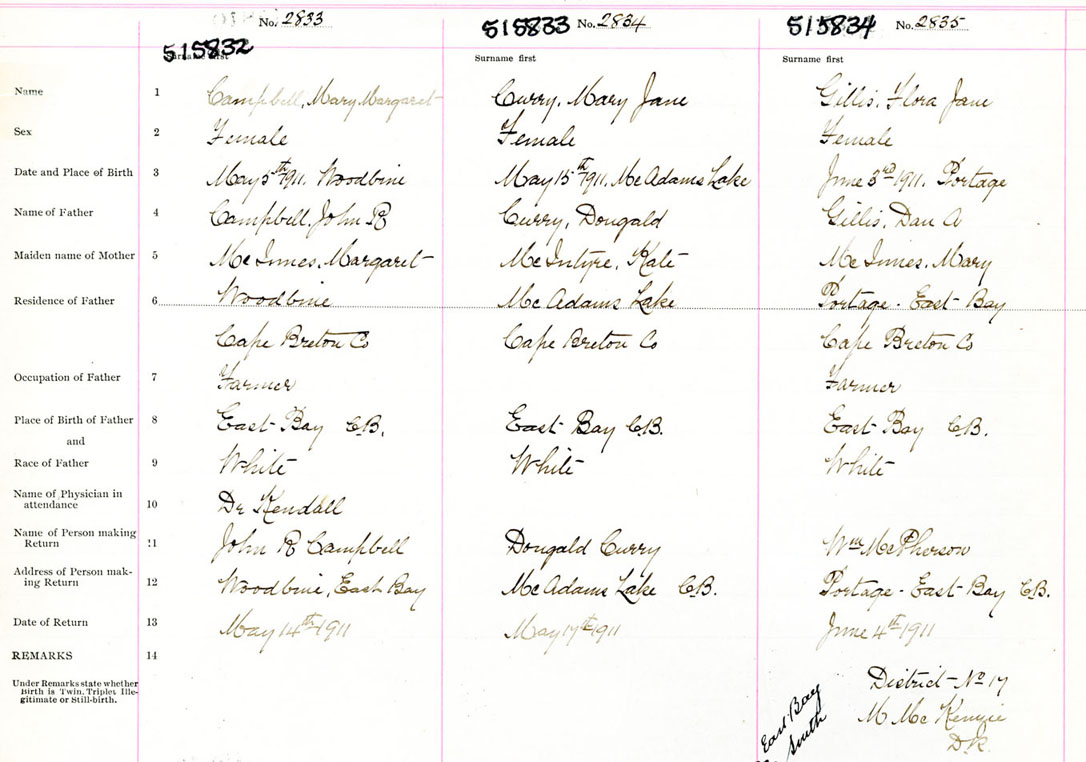 No. 2833
515833 No. 2834
515834 No. 2835
515832
Surname first
Surname first
Surname first
Name 1 Campbell, Mary Margaret Curry, Mary Jane Gillis, Flora Jane
Sex 2 Female Female Female
Date and Place of Birth 3 May 5th 1911. Woodbine May 15th 1911, McAdams Lake June 3rd 1911. Portage
Name of Father 4 Campbell, John R Curry, Dougald Gillis, Dan A
Maiden name of Mother 5 McInnes, Margaret McIntyre, Kate McInnes, Mary
Residence of Father 6 Woodbine McAdams Lake Portage - East Bay
Cape Breton Co Cape Breton Co Cape Breton Co
Occupation of Father 7 Farmer Farmer
Place of Birth of Father 8 East Bay C.B. East Bay C.B. East Bay C.B.
and
Race of Father 9 White White White
Name of Physician in
attendance 10 Dr Kendall
Name of Person making
Return 11 John R Campbell Dougald Curry Wm McPherson
Address of Person mak-
ing Return 12 Woodbine, East Bay McAdams Lake C.B. Portage - East Bay C.B.
Date of Return 13 May 14th 1911 May 17th 1911 June 4th 1911
REMARKS 14
Under Remarks state whether
Birth is Twin, Triplet Ille-
gitimate or Still-birth.
District - No 17
M McKenzie
D.R.
East Bay
South